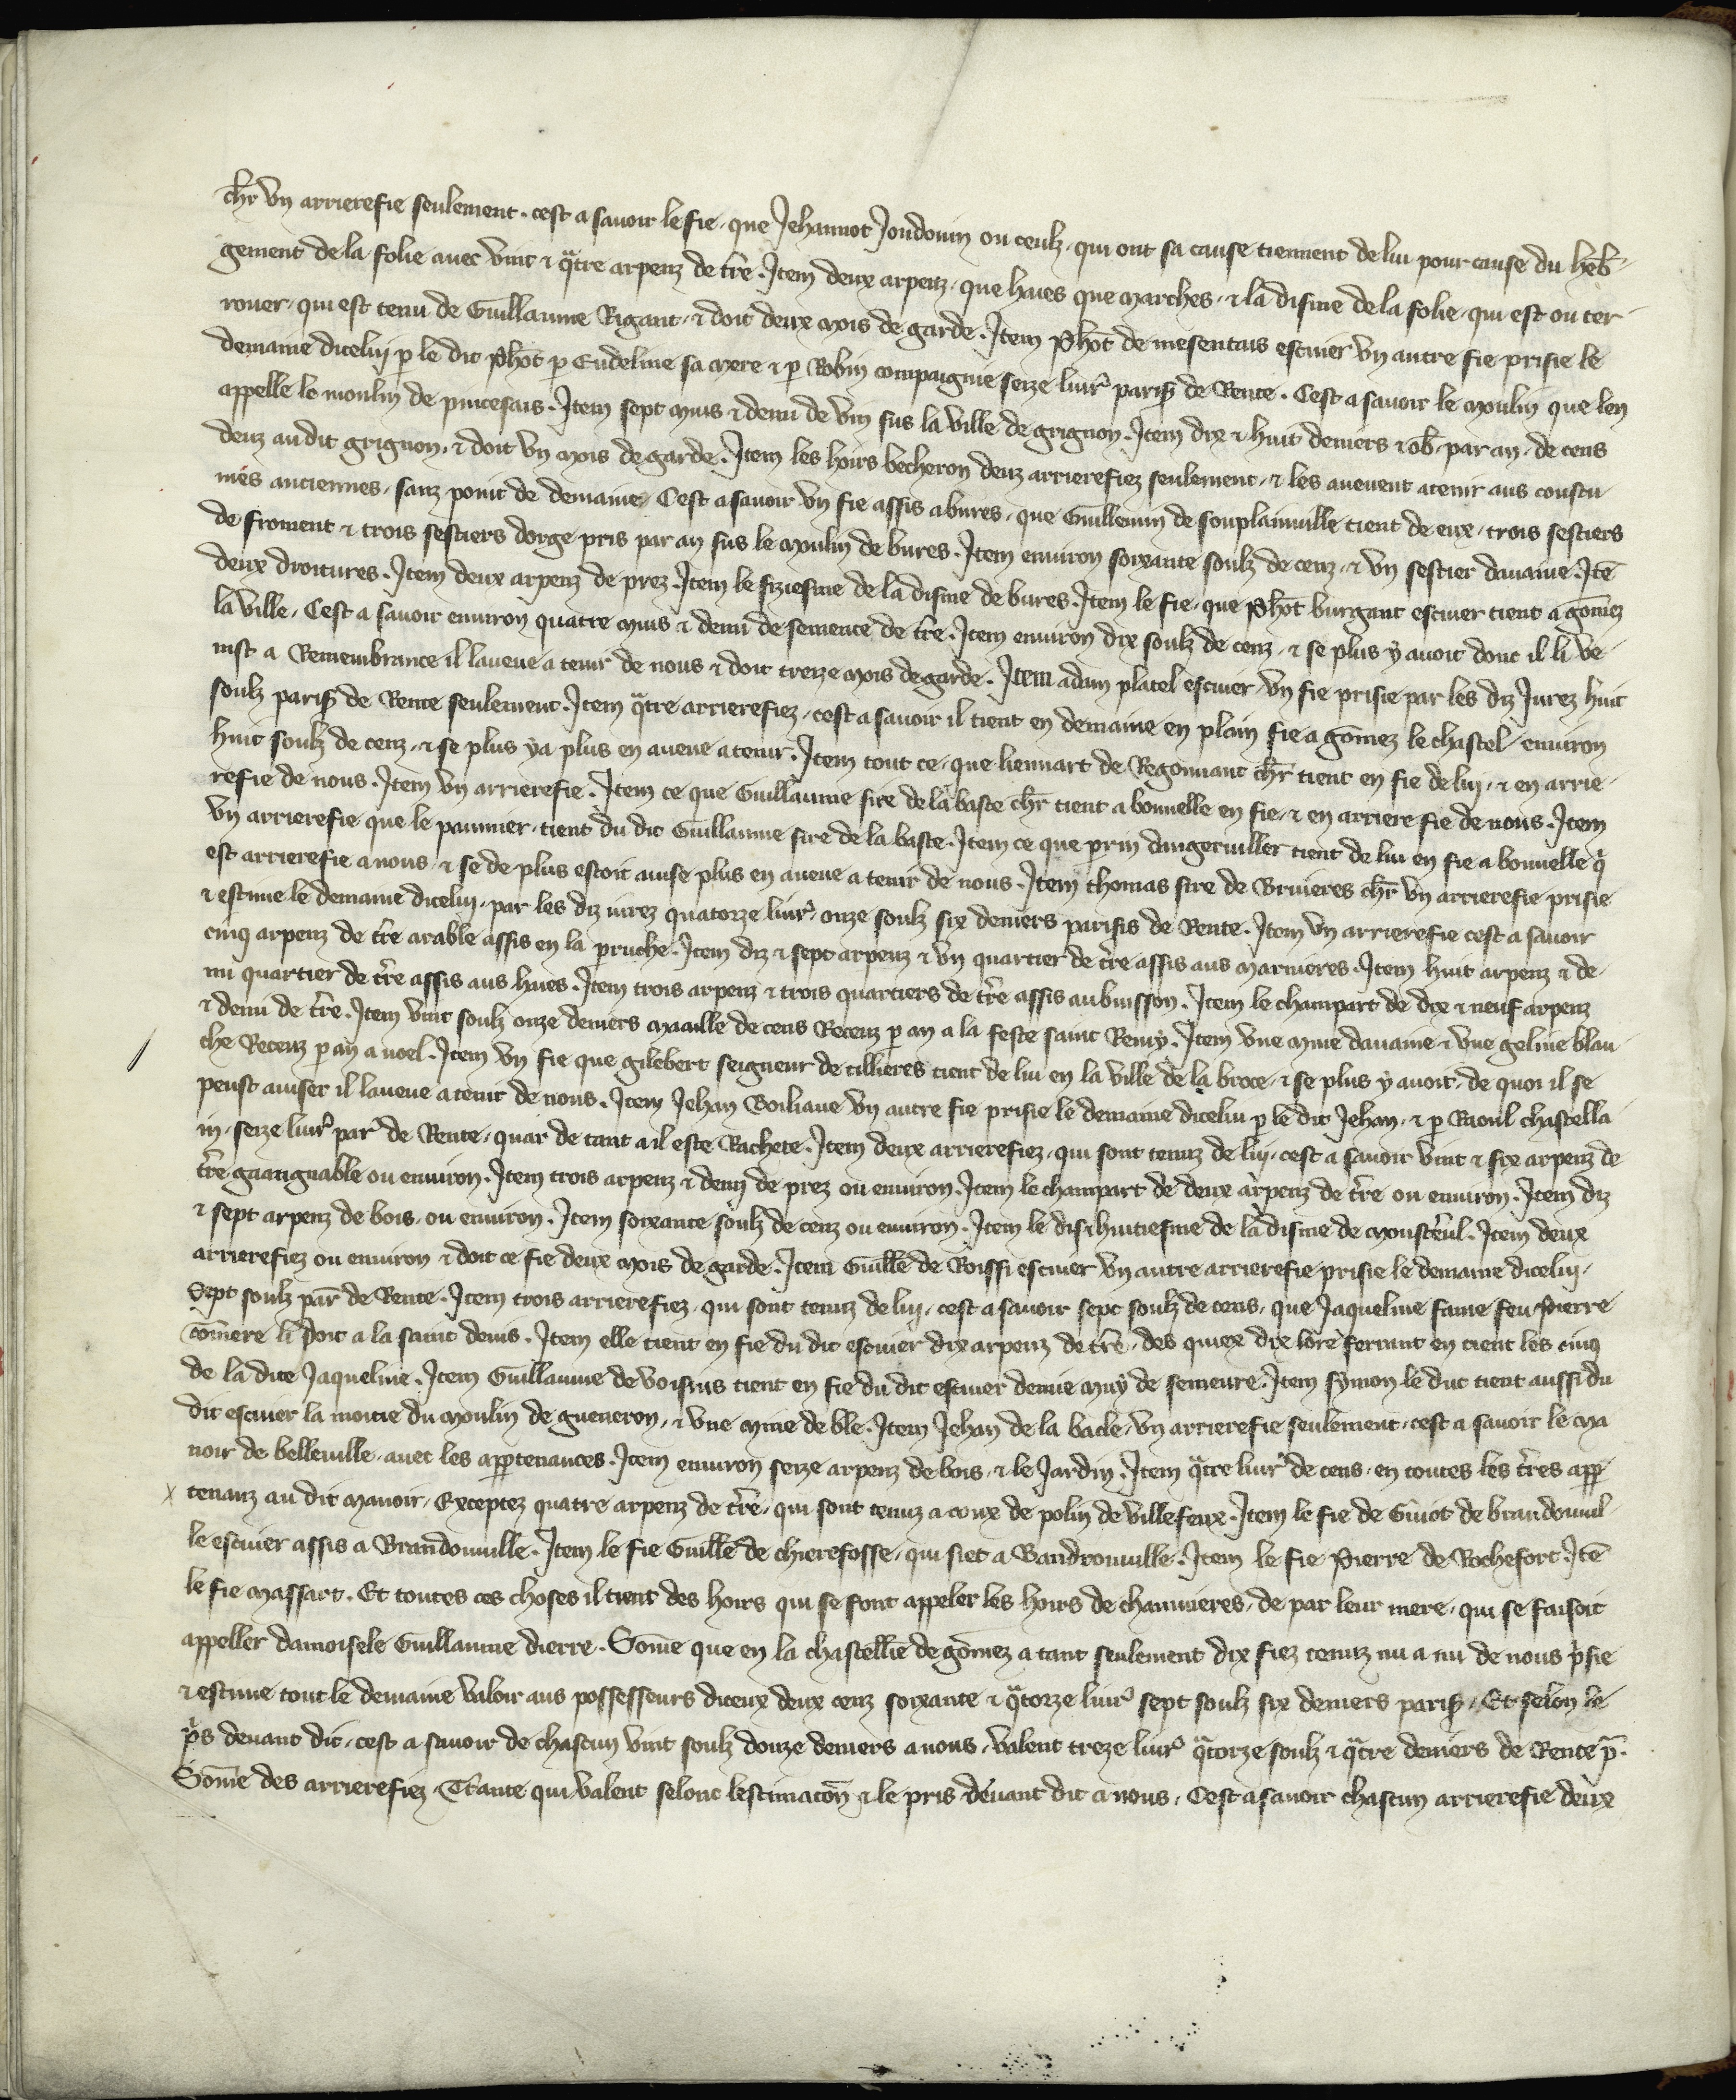 chr̄ vn arrierefie seulement. cest a sauoir le fie. que Jehannot Jondouin ou ceulz. qui ont sa cause tiennent de lui pour cause du heb̄
gement de la folie auec vint ⁊ q̃tre arpenz de tr̄re. Item deux arpenz. que hues que marches. ⁊ la disme de la folie. qui est ou ter
rouer. qui est tenu de Guillaume Rigaut. ⁊ doit deux mois de garde. Item Ph̄ot de mesentais escuier vn autre fie prisie le
demaine dicelui p̱ le dit ph̄ot p̱ Eudeline sa mere ⁊ p̱ Robin compaignie seize liur̉ paris̉ de Rente. Cest a sauoir le moulin que len
appelle le moulin de pincesais. Item sept muis ⁊ demi de vin sus la ville de grignon. Item dix ⁊ huit deniers ⁊ ob̄. par an. de cens
deuz au dit grignon. ⁊ doit vn mois de garde. Item les hoirs becheron deuz arrierefiez seulement. ⁊ les aueuent a tenir aus coustu
mes anciennes. sanz point de demaine. Cest a sauoir vn fie assis a bures. que Guillemin de souplainuille tient de eux. trois sestiers
de froment ⁊ trois sestiers dorge. pris par an sus le moulin de bures. Item enuiron soixante soulz de cenz. ⁊ vn sestier dauaine. Itē
deux droitures. Item deux arpenz de prez. Item le siziesme de la disme de bures. Item le fie. que Ph̄ot burgaut escuier tient a gom̄ez
la ville. Cest a sauoir enuiron quatre muis ⁊ demi de semence de tr̄re. Item enuiron dix soulz de cenz. ⁊ se plus y auoit dont il li ve
nist a Remembrance il laueue a tenir de nous ⁊ doit treize mois de garde. Item adam platel escuier. vn fie prisie par les diz Jurez huit
soulz paris̉ de Rente seulement. Item q̃tre arrierefiez. cest a sauoir il tient en demaine en plain fie a gom̄ez le chastel enuiron
huit soulz de cenz. ⁊ se plus y a plus en aueue a tenir. Item tout ce. que liennart de Regonuant chr̄ tient en fie de lui. ⁊ en arrie
refie de nous. Item vn arrierefie. Item ce que Guillaume sire de la baste chr̄ tient a bonnelle en fie. ⁊ en arriere fie de nous. Item
vn arrierefie que le paumier. tient du dit Guillaume sire de la baste. Item ce que perrin dangeruiller tient de lui en fie a bonnelle q̃
est arrierefie a nous. ⁊ se de plus estoit auise plus en aueue a tenir de nous. Item thomas sire de Bruieres chr̄ vn arrierefie prisie
⁊ estime le demaine dicelui. par les diz iurez quatorze liur̉ onze soulz six deniers parisis de Rente. Item vn arrierefie cest a sauoir
cinq arpenz de tr̄re arable assis en la perruche. Item diz ⁊ sept arpenz ⁊ vn quartier de tr̄re assis aus marnieres. Item huit arpenz ⁊ de
mi quartier de tr̄re assis aus hues. Item trois arpenz ⁊ trois quartiers de tr̄re assis au buisson. Item le champart de dix ⁊ neuf arpenz
⁊ demi de tr̄re. Item vint soulz onze deniers maaille de cens Receuz p̱ an a la feste saint Remy. Item vne mine dauaine ⁊ vne geline blan
che Receuz p̱ an a noel. Item vn fie que gilebert seigneur de tillieres tient de lui en la ville de la broce. ⁊ se plus y auoit. de quoi il se
peust auiser il laueue a tenir de nous. Item Jehan Boiliaue vn autre fie prisie le demaine dicelui p̱ le dit Jehan. ⁊ p̱ Raoul chastella
in. seize liur̉ par̉ de Rente. quar de tant a il este Rachete. Item deux arrierefiez. qui sont tenuz de lui. cest a sauoir vint ⁊ six arpenz de
tr̄re guaignable ou enuiron. Item trois arpenz ⁊ demi de prez ou enuiron. Item le champart de deux arpenz de tr̄re ou enuiron. Item diz
⁊ sept arpenz de bois. ou enuiron. Item soixante soulz de cenz ou enuiron. Item le dis⁊huitiesme de la disme de monsterul. Item deux
arrierefiez ou enuiron ⁊ doit ce fie deux mois de garde. Item Guill̄e de Roissi escuier vn autre arrierefie prisie le demaine dicelui.
Sept soulz par̄ de Rente. Item trois arrierefiez. qui sont tenuz de lui. cest a sauoir sept soulz de cens. que Jaqueline fame feu Pierre
com̄ere li doit a la saint denis. Item elle tient en fie du dit escuier dix arpenz de tr̄re. des quiex dix lore ferrant en tient les cinq
de la dite Jaqueline. Item Guillaume de voisins tient en fie du dit escuier demie muy de semeure. Item symon le duc tient aussi du
dit escuier la moitie du moulin de gueneron. ⁊ vne mine de ble. Item Jehan de la bacle. vn arrierefie seulement. cest a sauoir le ma
noir de belleuille. auec les app̱tenances. Item enuiron seize arpenz de bois. ⁊ le Jardin. Item q̃tre liur̉ de cens. en toutes les tr̄res app̱
tenanz au dit manoir. Exceptez quatre arpenz de tr̄re. qui sont tenuz a ceux de polin de villefeux. Item le fie de Guiot de brandouuil
le escuier assis a Brandonuille. Item le fie Guill̄e de chierefosse. qui siet a Gandronuille. Item le fie Pierre de Rochefort. Itē
le fie massart. Et toutes ces choses il tient des hoirs qui se font appeler les hoirs de chaumieres. de par leur mere. qui se faisoit
appeller damoisele Guillaume dierre. Som̄e que en la chastellie de gom̄ez a tant seulement dix fiez tenuz nu a nu de nous p̉sie
⁊ estime tout le demaine valoir aus possesseurs diceux deux cenz soixante ⁊ q̃torze liur̉ sept soulz six deniers paris̉. Et selon le
p̉s deuant dit. cest a sauoir de chascun vint soulz douze deniers a nous. valent treze liur̉ q̃torze soulz ⁊ q̃tre deniers de Rente p̄.
Som̄e des arrierefiez. Trante qui valent selonc lestimacōn ⁊ le pris deuant dit a nous. Cest a sauoir chascun arrierefie deux